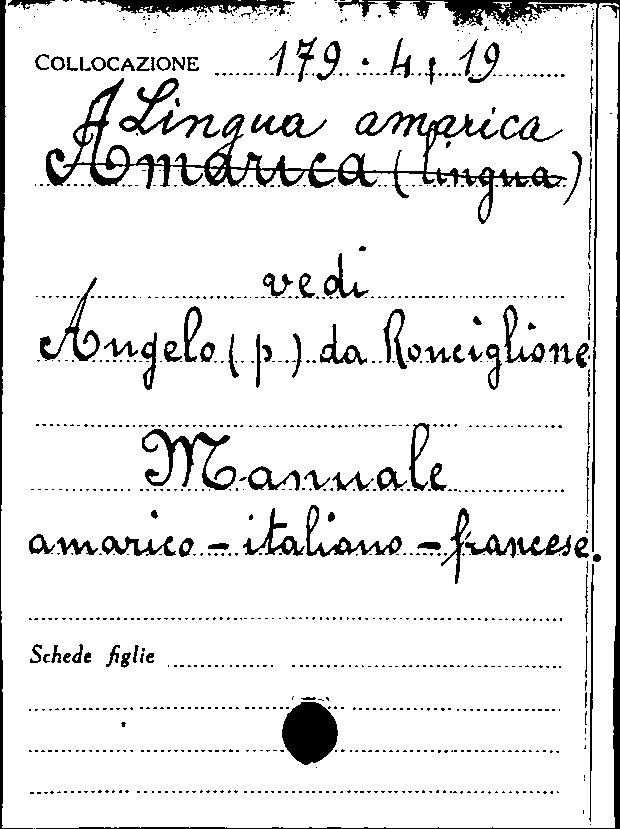 COLLOCAZIONE 179.4.19
Lingua amarica
Amarica (lingua)
vedi
Angelo (p) da Ronciglione
Manuale
amarico - italiano - francese.
Schede figlie